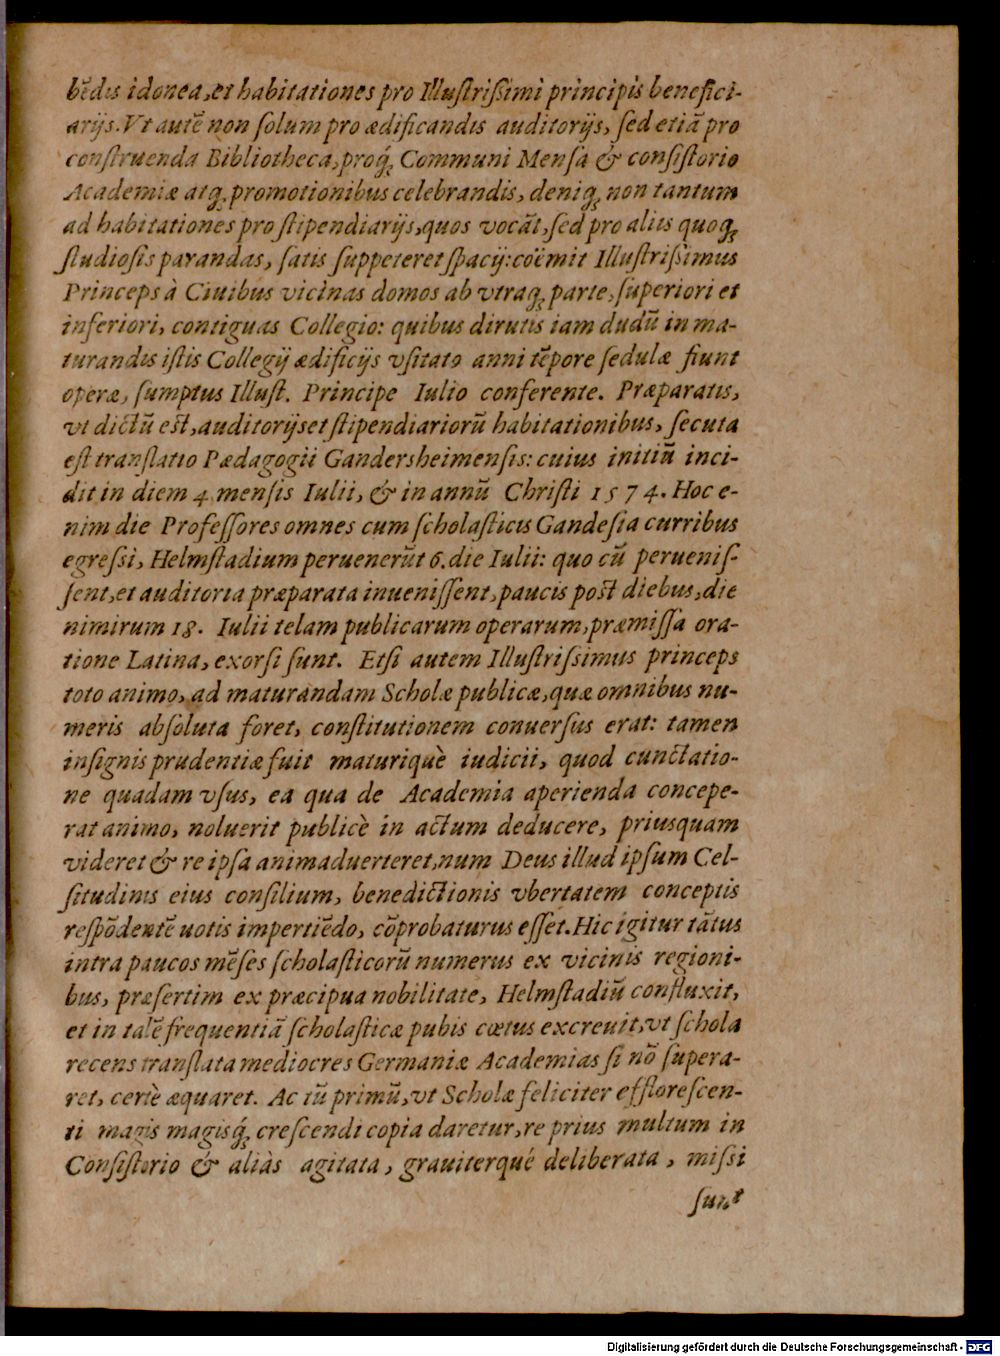 bẽdis idonea, et habitationes pro Illuſtriſsimi principis benefici-
arijs. Vt autẽ non ſolum pro ædificandis auditorijs, ſed etiã pro
conſtruenda Bibliotheca, proq́; Communi Menſa & conſiſtorio
Academiæ atq; promotionibus celebrandis, deniq; non tantum
ad habitationes pro ſtipendiarijs, quos vocãt, ſed pro aliis quoq;
ſtudioſis parandas, ſatis ſuppeteret ſpacij: coëmit Illuſtriſsimus
Princeps à Ciuibus vicinas domos ab vtraq; parte, ſuperiori et
inferiori, contiguas Collegio: quibus dirutis iam dudũ in ma-
turandis iſtis Collegij ædificijs vſitato anni tẽpore ſedulæ fiunt
operæ, ſumptus Illuſt. Principe Iulio conferente. Præparatis,
vt dictũ eſt, auditorijs et ſtipendiariorũ habitationibus, ſecuta
eſt tranſlatio Pædagogii Gandersheimenſis: cuius initiũ inci-
dit in diem 4 menſis Iulii, & in annũ Chriſti 1574. Hoc e-
nim die Profeſſores omnes cum ſcholaſticis Gandeſia curribus
egreſsi, Helmſtadium peruenerũt 6. die Iulii: quo cũ perueniſ-
ſent, et auditoria præparata inueniſſent, paucis poſt diebus, die
nimirum 18. Iulii telam publicarum operarum, præmiſſa ora-
tione Latina, exorſi ſunt. Etſi autem Illuſtriſsimus princeps
toto animo, ad maturandam Scholæ publicæ, quæ omnibus nu-
meris abſoluta foret, conſtitutionem conuerſus erat: tamen
inſignis prudentiæ fuit maturiquè iudicii, quod cunctatio-
ne quadam vſus, ea qua de Academia aperienda concepe-
rat animo, noluerit publicè in actum deducere, priusquam
videret & re ipſa animaduerteret, num Deus illud ipſum Cel-
ſitudinis eius conſilium, benedictionis vbertatem conceptis
reſpõdentẽ uotis impertiẽdo, cõprobaturus eſſet. Hic igitur tãtus
intra paucos mẽſes ſcholaſticorũ numerus ex vicinis regioni-
bus, præſertim ex præcipua nobilitate, Helmſtadiũ confluxit,
et in talẽ frequentiã ſcholaſticæ pubis cœtus excreuit, vt ſchola
recens tranſlata mediocres Germaniæ Academias ſi nõ ſupera-
ret, certè æquaret. Ac tũ primũ, vt Scholæ feliciter effloreſcen-
ti magis magisq́; creſcendi copia daretur, re prius multum in
Conſiſtorio & aliàs agitata, grauiterqué deliberata, miſsi
ſunt
Digitalisierung gefördert durch die Deutsche Forschungsgemeinschaft - DFG